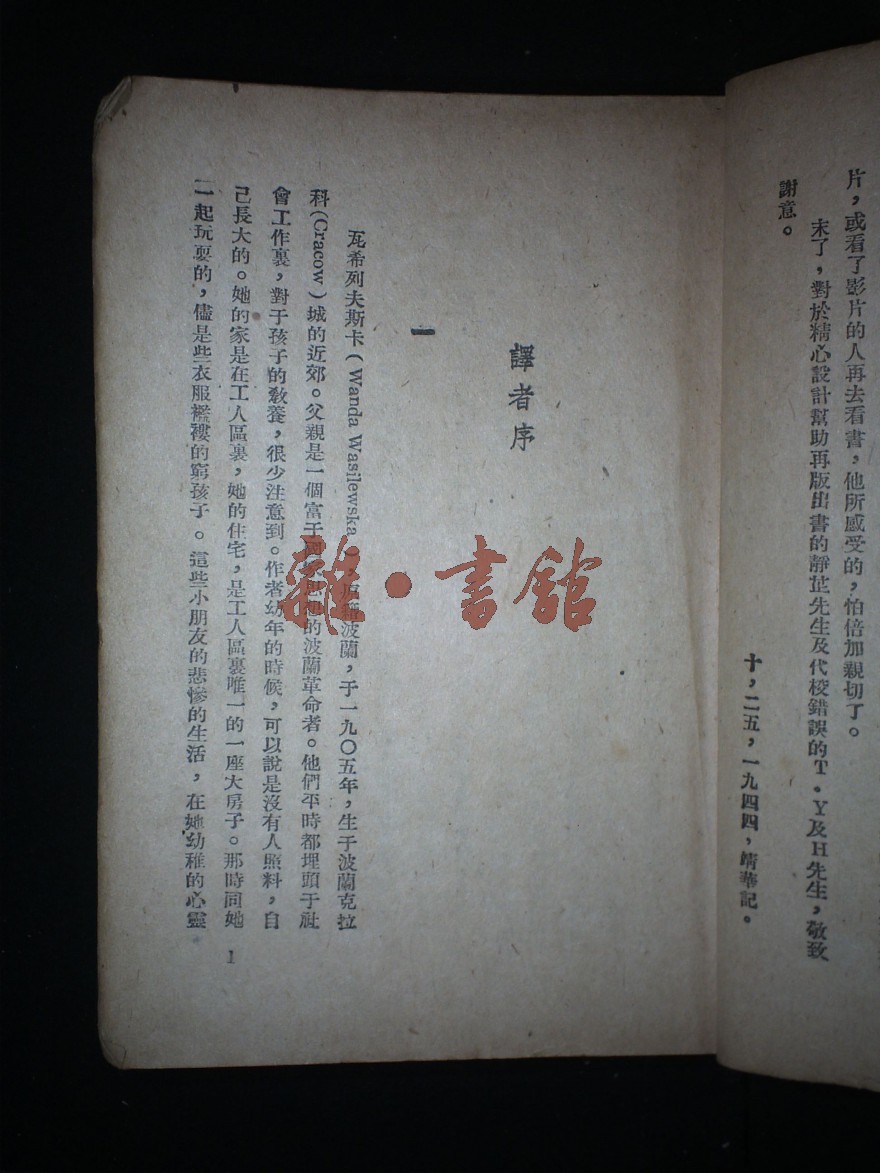 片，或看了影片的人再去看書，他所感受的，怕倍加親切了。
末了，對於精心設計幫助再版出書的靜芷先生及代校錯誤的T．Y及H先生，敬致
謝意。
十，二五，一九四四，靖華記。
譯者序
一
瓦希列夫斯卡（Wanda Wasilewska 原籍波蘭，于一九〇五年，生于波蘭克拉
科(Cracow）城的近郊。父親是一個富于國家思想的波蘭革命者。他們平時都埋頭于社
會工作裏，對于孩子的敎養，很少注意到。作者幼年的時候，可以說是沒有人照料，自
己長大的。她的家是在工人區裏，她的住宅，是工人區裏唯一的一座大房子。那時同她
一起玩耍的，儘是些衣服襤褸的窮孩子。這些小朋友的悲慘的生活，在她幼稚的心靈
1
雜·書館